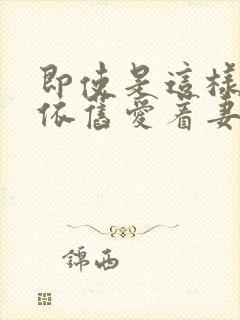 即使是這樣
依舊愛着妻
錦西